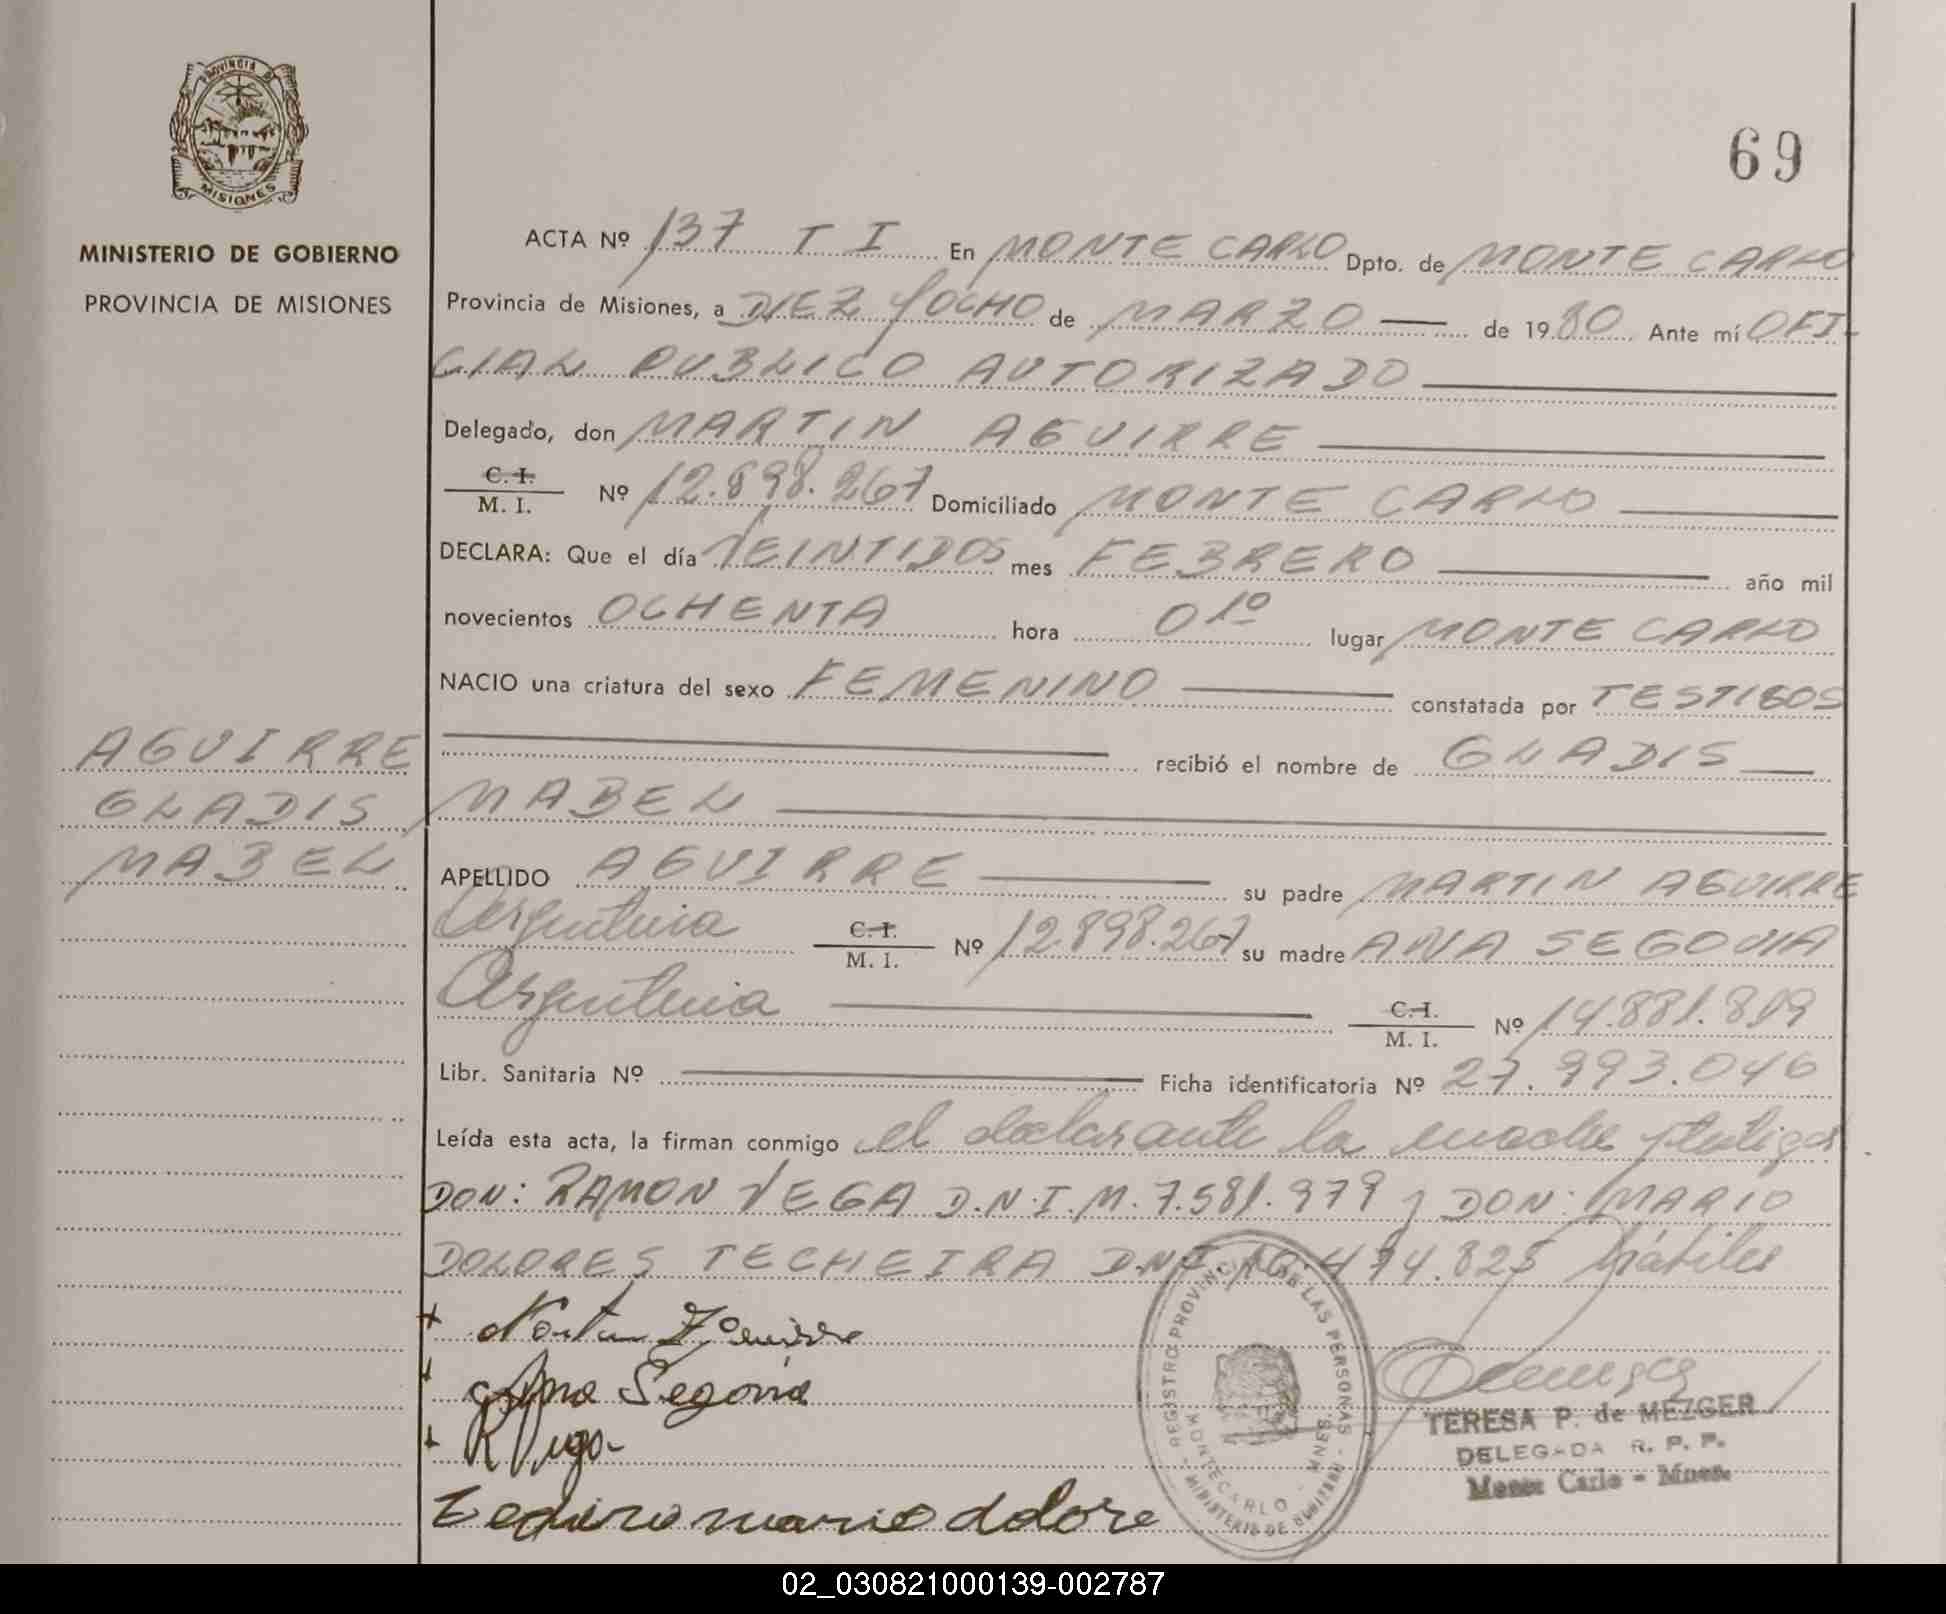 PROVINCIA DE
MISIONES
MINISTERIO DE GOBIERNO
PROVINCIA DE MISIONES
69
ACTA Nº 137 T I En MONTE CARLO Dpto. de MONTE CARLO
Provincia de Misiones, a DIEZ y OCHO de MARZO de 1980 Ante mí OFI-
CIAL PUBLICO AUTORIZADO
Delegado, don MARTIN AGUIRRE
C. I.
M. I. Nº 12.898.267 Domiciliado MONTE CARLO
DECLARA: Que el día VEINTIDOS mes FEBRERO año mil
novecientos OCHENTA hora 01º lugar MONTE CARLO
NACIO una criatura del sexo FEMENINO constatada por TESTIGOS
recibió el nombre de GLADIS
MABEL
AGUIRRE
GLADIS
MABEL
APELLIDO AGUIRRE su padre MARTIN AGUIRRE
Argentina C. I. M. I. Nº 12.898.267 su madre ANA SEGOVIA
Argentina C. I. M. I. Nº 14.881.819
Libr. Sanitaria Nº Ficha identificatoria Nº 27.993.046
Leída esta acta, la firman conmigo el declarante la madre y testigos
DON: RAMON VEGA D.N.I.M. 7.581.979 y DON: MARIO
DOLORES TECHEIRA DNI 10.474.825 hábiles
Ana Segovia
R Vega
mario dolore
REGISTRO PROVINCIAL DE LAS PERSONAS
MONTECARLO - MNES.
MINISTERIO DE GOBIERNO
TERESA P. de MEZGER
DELEGADA R. P. P.
Monte Carlo - Mnes.
02_030821000139-002787